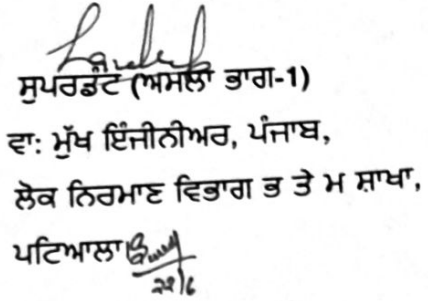 ਸੁਪਰਡੰਟ (ਅਮਲਾ ਭਾਗ-1)
ਵਾ: ਮੁੱਖ ਇੰਜੀਨੀਅਰ, ਪੰਜਾਬ,
ਲੋਕ ਨਿਰਮਾਣ ਵਿਭਾਗ ਭ ਤੇ ਮ ਸ਼ਾਖਾ,
ਪਟਿਆਲਾ